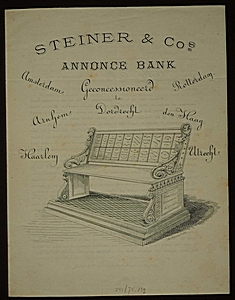 STEINER & Cos
ANNONCE BANK
Amsterdam, Geconcessioneerd Rotterdam
te
Arnhem, Dordrecht den Haag
Haarlem Utrecht